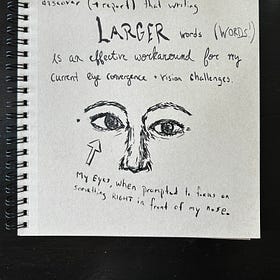 discover (+ report) that writing
LARGER words (WORDS!)
is an effective workaround for my
current eye convergence + vision challenges.
My eyes, when prompted to focus on
something RIGHT in front of my nose.